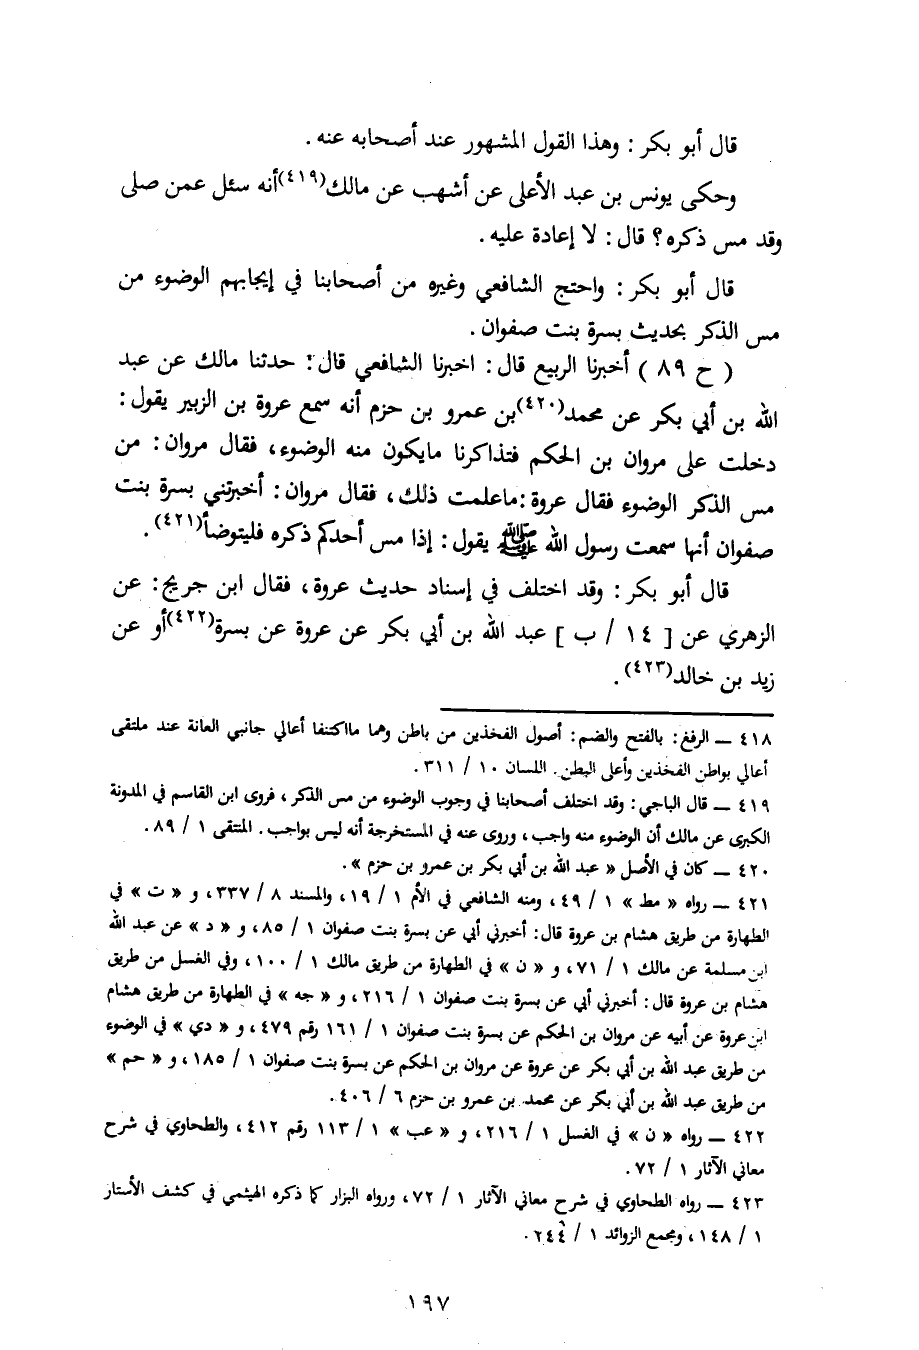 قال أبو بكر : وهذا القول المشهور عند أصحابه عنه .
وحكى يونس بن عبد الأعلى عن أشهب عن مالك(٤١٩)أنه سئل عمن صلى
وقد مس ذكره؟ قال: لا إعادة عليه .
قال أبو بكر : واحتج الشافعي وغيره من أصحابنا في إيجابهم الوضوء من
مس الذكر بحديث بسرة بنت صفوان .
( ح ٨٩ ) أخبرنا الربيع قال : اخبرنا الشافعي قال : حدثنا مالك عن عبد
الله بن أبي بكر عن محمد(٤٢٠)بن عمرو بن حزم أنه سمع عروة بن الزبير يقول :
دخلت على مروان بن الحكم فتذاكرنا مايكون منه الوضوء، فقال مروان : من
مس الذكر الوضوء فقال عروة :ماعلمت ذلك، فقال مروان : أخبرتني بسرة بنت
صفوان أنها سمعت رسول الله ﷺ يقول : إذا مس أحدكم ذكره فليتوضأ(٤٢١) .
قال أبو بكر : وقد اختلف في إسناد حديث عروة، فقال ابن جريج : عن
الزهري عن [ ١٤ / ب ] عبد الله بن أبي بكر عن عروة عن بسرة(٤٢٢)أو عن
زيد بن خالد(٤٢٣) .
٤١٨ ــ الرفغ : بالفتح والضم : أصول الفخذين من باطن وهما مااكتنفا أعالي جانبي العانة عند ملتقى
أعالي بواطن الفخذين وأعلى البطن . اللسان ١٠ / ٣١١ .
٤١٩ ــ قال الباجي : وقد اختلف أصحابنا في وجوب الوضوء من مس الذكر ، فروى ابن القاسم في المدونة
الكبرى عن مالك أن الوضوء منه واجب ، وروى عنه في المستخرجة أنه ليس بواجب . المنتقى ١ / ٨٩ .
٤٢٠ ــ كان في الأصل « عبد الله بن أبي بكر بن عمرو بن حزم » .
٤٢١ ــ رواه « مط » ١ / ٤٩ ، ومنه الشافعي في الأم ١ / ١٩ ، والمسند ٨ / ٣٣٧ ، و « ت » في
الطهارة من طريق هشام بن عروة قال : أخبرني أبي عن بسرة بنت صفوان ١ / ٨٥ ، و « د » عن عبد الله
ابن مسلمة عن مالك ١ / ٧١ ، و « ن » في الطهارة من طريق مالك ١ / ١٠٠ ، وفي الغسل من طريق
هشام بن عروة قال : أخبرني أبي عن بسرة بنت صفوان ١ / ٢١٦ ، و « جه » في الطهارة من طريق هشام
ابن عروة عن أبيه عن مروان بن الحكم عن بسرة بنت صفوان ١ / ١٦١ رقم ٤٧٩ ، و « دي » في الوضوء
من طريق عبد الله بن أبي بكر عن عروة عن مروان بن الحكم عن بسرة بنت صفوان ١ / ١٨٥ ، و « حم »
من طريق عبد الله بن أبي بكر عن محمد بن عمرو بن حزم ٦ / ٤٠٦ .
٤٢٢ ــ رواه « ن » في الغسل ١ / ٢١٦ ، و « عب » ١ / ١١٣ رقم ٤١٢ ، والطحاوي في شرح
معاني الآثار ١ / ٧٢ .
٤٢٣ ــ رواه الطحاوي في شرح معاني الآثار ١ / ٧٢ ، ورواه البزار كما ذكره الهيثمي في كشف الأستار
١ / ١٤٨ ، ومجمع الزوائد ١ / ٢٤٤ .
١٩٧